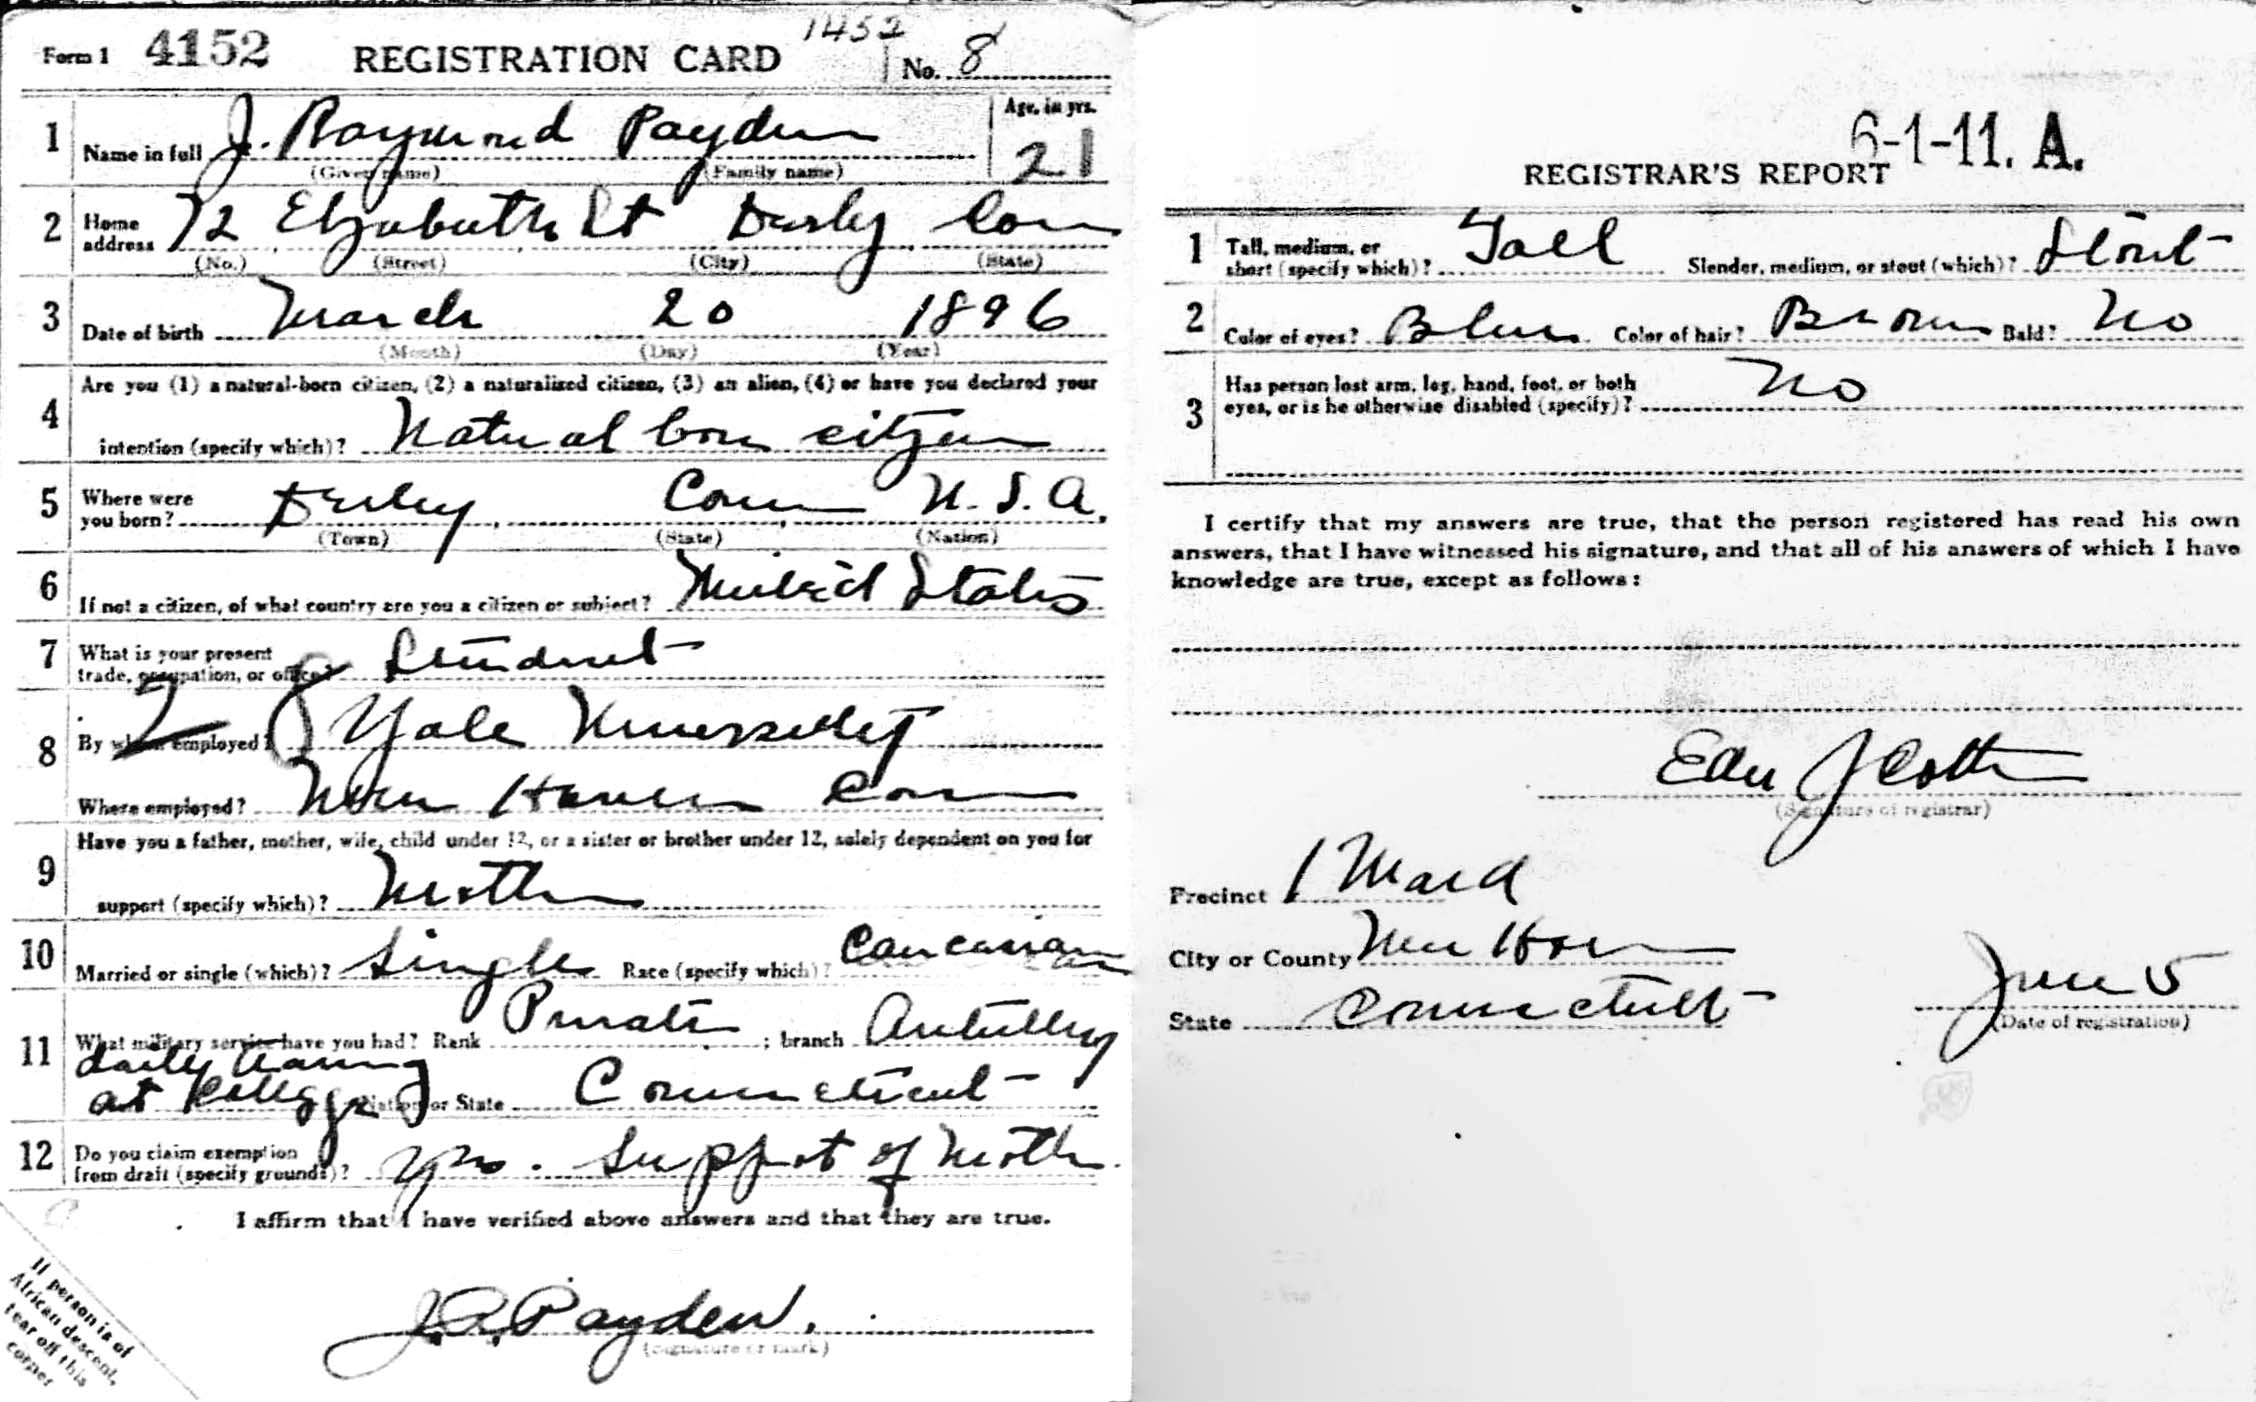 1452
Form 1 4152 REGISTRATION CARD No. 8
1 Name in full J. Raymond Payden Age, in yrs. 21
(Given name) (Family name)
2 Home address 72 Elizabeth St Derby Conn
(No.) (Street) (City) (State)
3 Date of birth March 20 1896
(Month) (Day) (Year)
4 Are you (1) a natural-born citizen, (2) a naturalized citizen, (3) an alien, (4) or have you declared your
intention (specify which)? Natural born citizen
5 Where were you born? Derby Conn U.S.A.
(Town) (State) (Nation)
6 If not a citizen, of what country are you a citizen or subject? United States
7 What is your present trade, occupation, or office? Student
8 By whom employed? Yale University
Where employed? New Haven Conn
9 Have you a father, mother, wife, child under 12, or a sister or brother under 12, solely dependent on you for
support (specify which)? Mother
10 Married or single (which)? Single Race (specify which)? Caucasian
11 What military service have you had? Rank Private ; branch Artillery
daily training
at College Nation or State Connecticut
12 Do you claim exemption from draft (specify grounds)? Yes. Support of Mother
I affirm that I have verified above answers and that they are true.
J.R. Payden.
(Signature or mark)
If person is of
African descent,
tear off this
corner
6-1-11. A.
REGISTRAR'S REPORT
1 Tall, medium, or short (specify which)? Tall Slender, medium, or stout (which)? Stout
2 Color of eyes? Blue Color of hair? Brown Bald? No
3 Has person lost arm, leg, hand, foot, or both
eyes, or is he otherwise disabled (specify)? No
I certify that my answers are true, that the person registered has read his own
answers, that I have witnessed his signature, and that all of his answers of which I have
knowledge are true, except as follows:
(Signature of registrar)
Precinct 1 Ward
City or County New Haven
State Connecticut June 5
(Date of registration)